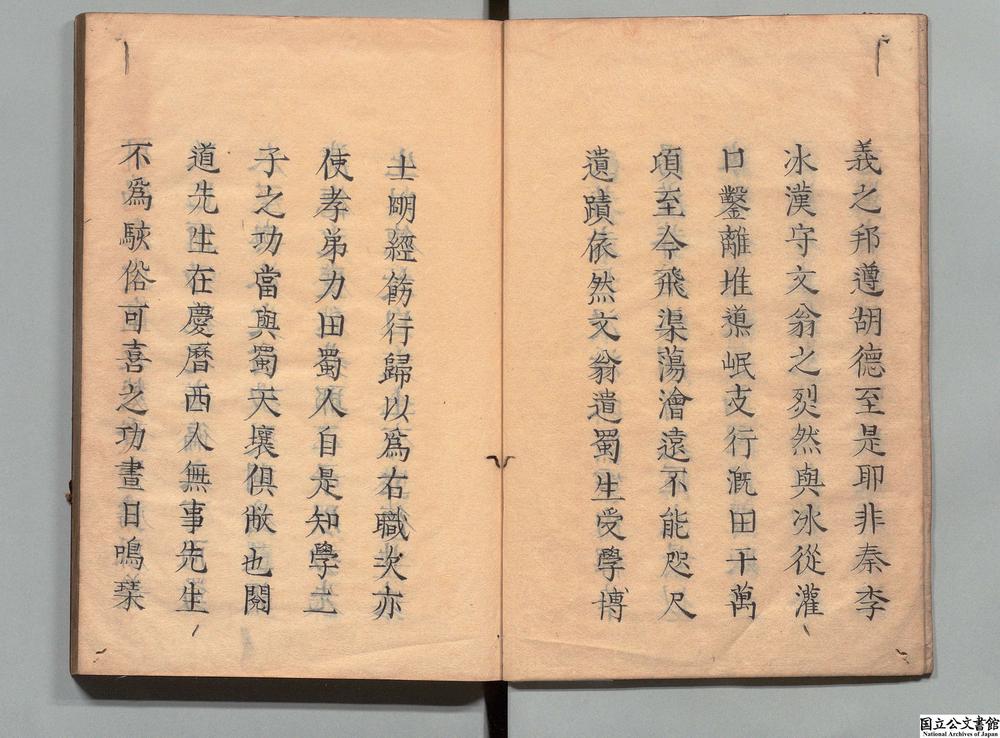 義之邦遵胡德至是耶非秦李
冰漢守文翁之烈然與冰從灌
口鑿離堆導岷支行漑田十萬
項至今飛渠蕩澮遠不能咫尺
遺蹟依然文翁遣蜀生受學博
士明經飭行歸以爲右職次亦
使孝弟力田蜀人自是知學二
子之功當與蜀天壤俱敝也閱
道先生在慶曆西人無事先生
不爲駭俗可喜之功晝日鳴琹
国立公文書館
National Archives of Japan